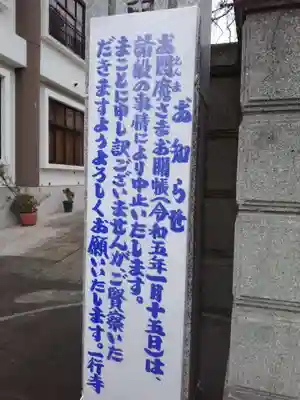 お知らせ
お閻魔さまお開帳(令和五年一月十五日)は、
えんま
諸般の事情により中止いたします。
まことに申し訳ございませんがご賢察いた
だきますようよろしくお願いいたします。一行寺